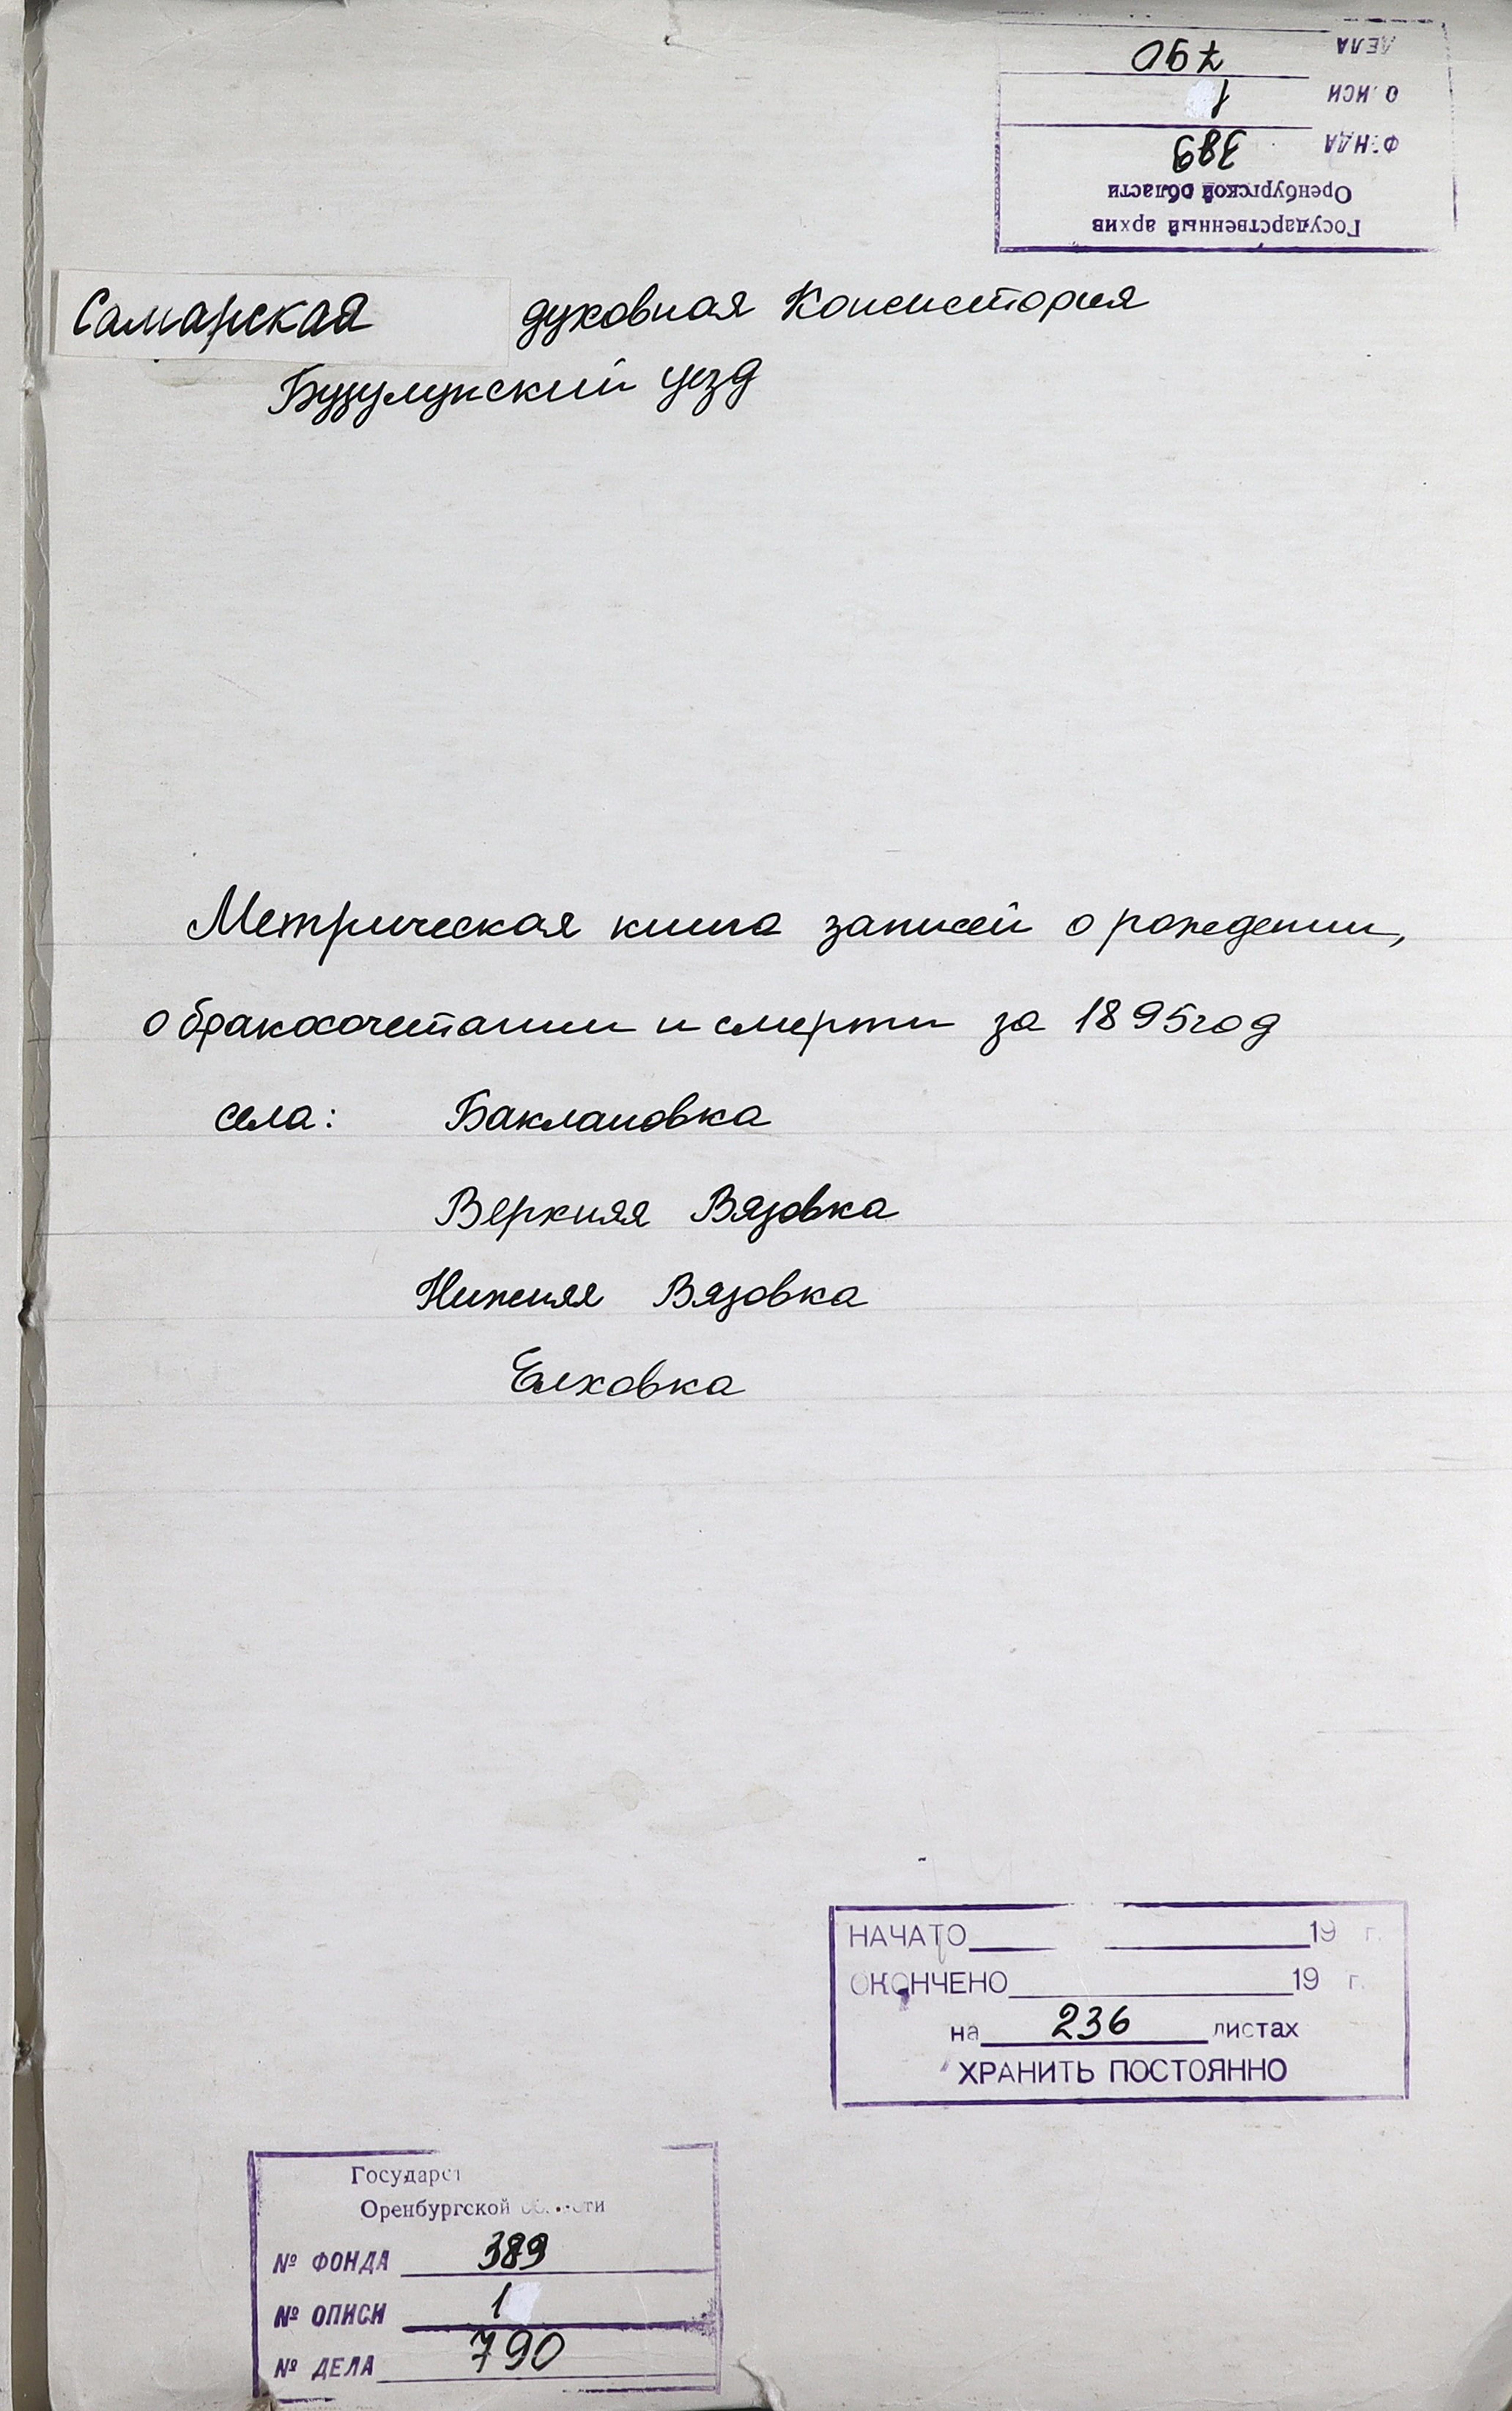 Государственный архив
Оренбургской области
ФОНДА 389
ОПИСИ 1
ДЕЛА 790
Самарская духовная Консистория
Бузулукский уезд
Метрическая книга записей о рождении,
о бракосочетании и смерти за 1895 год
села: Баклановка
Верхняя Вязовка
Нижняя Вязовка
Елховка
НАЧАТО 19 г.
ОКОНЧЕНО 19 г.
на 236 листах
ХРАНИТЬ ПОСТОЯННО
Государст
Оренбургской области
№ ФОНДА 389
№ ОПИСИ 1
№ ДЕЛА 790